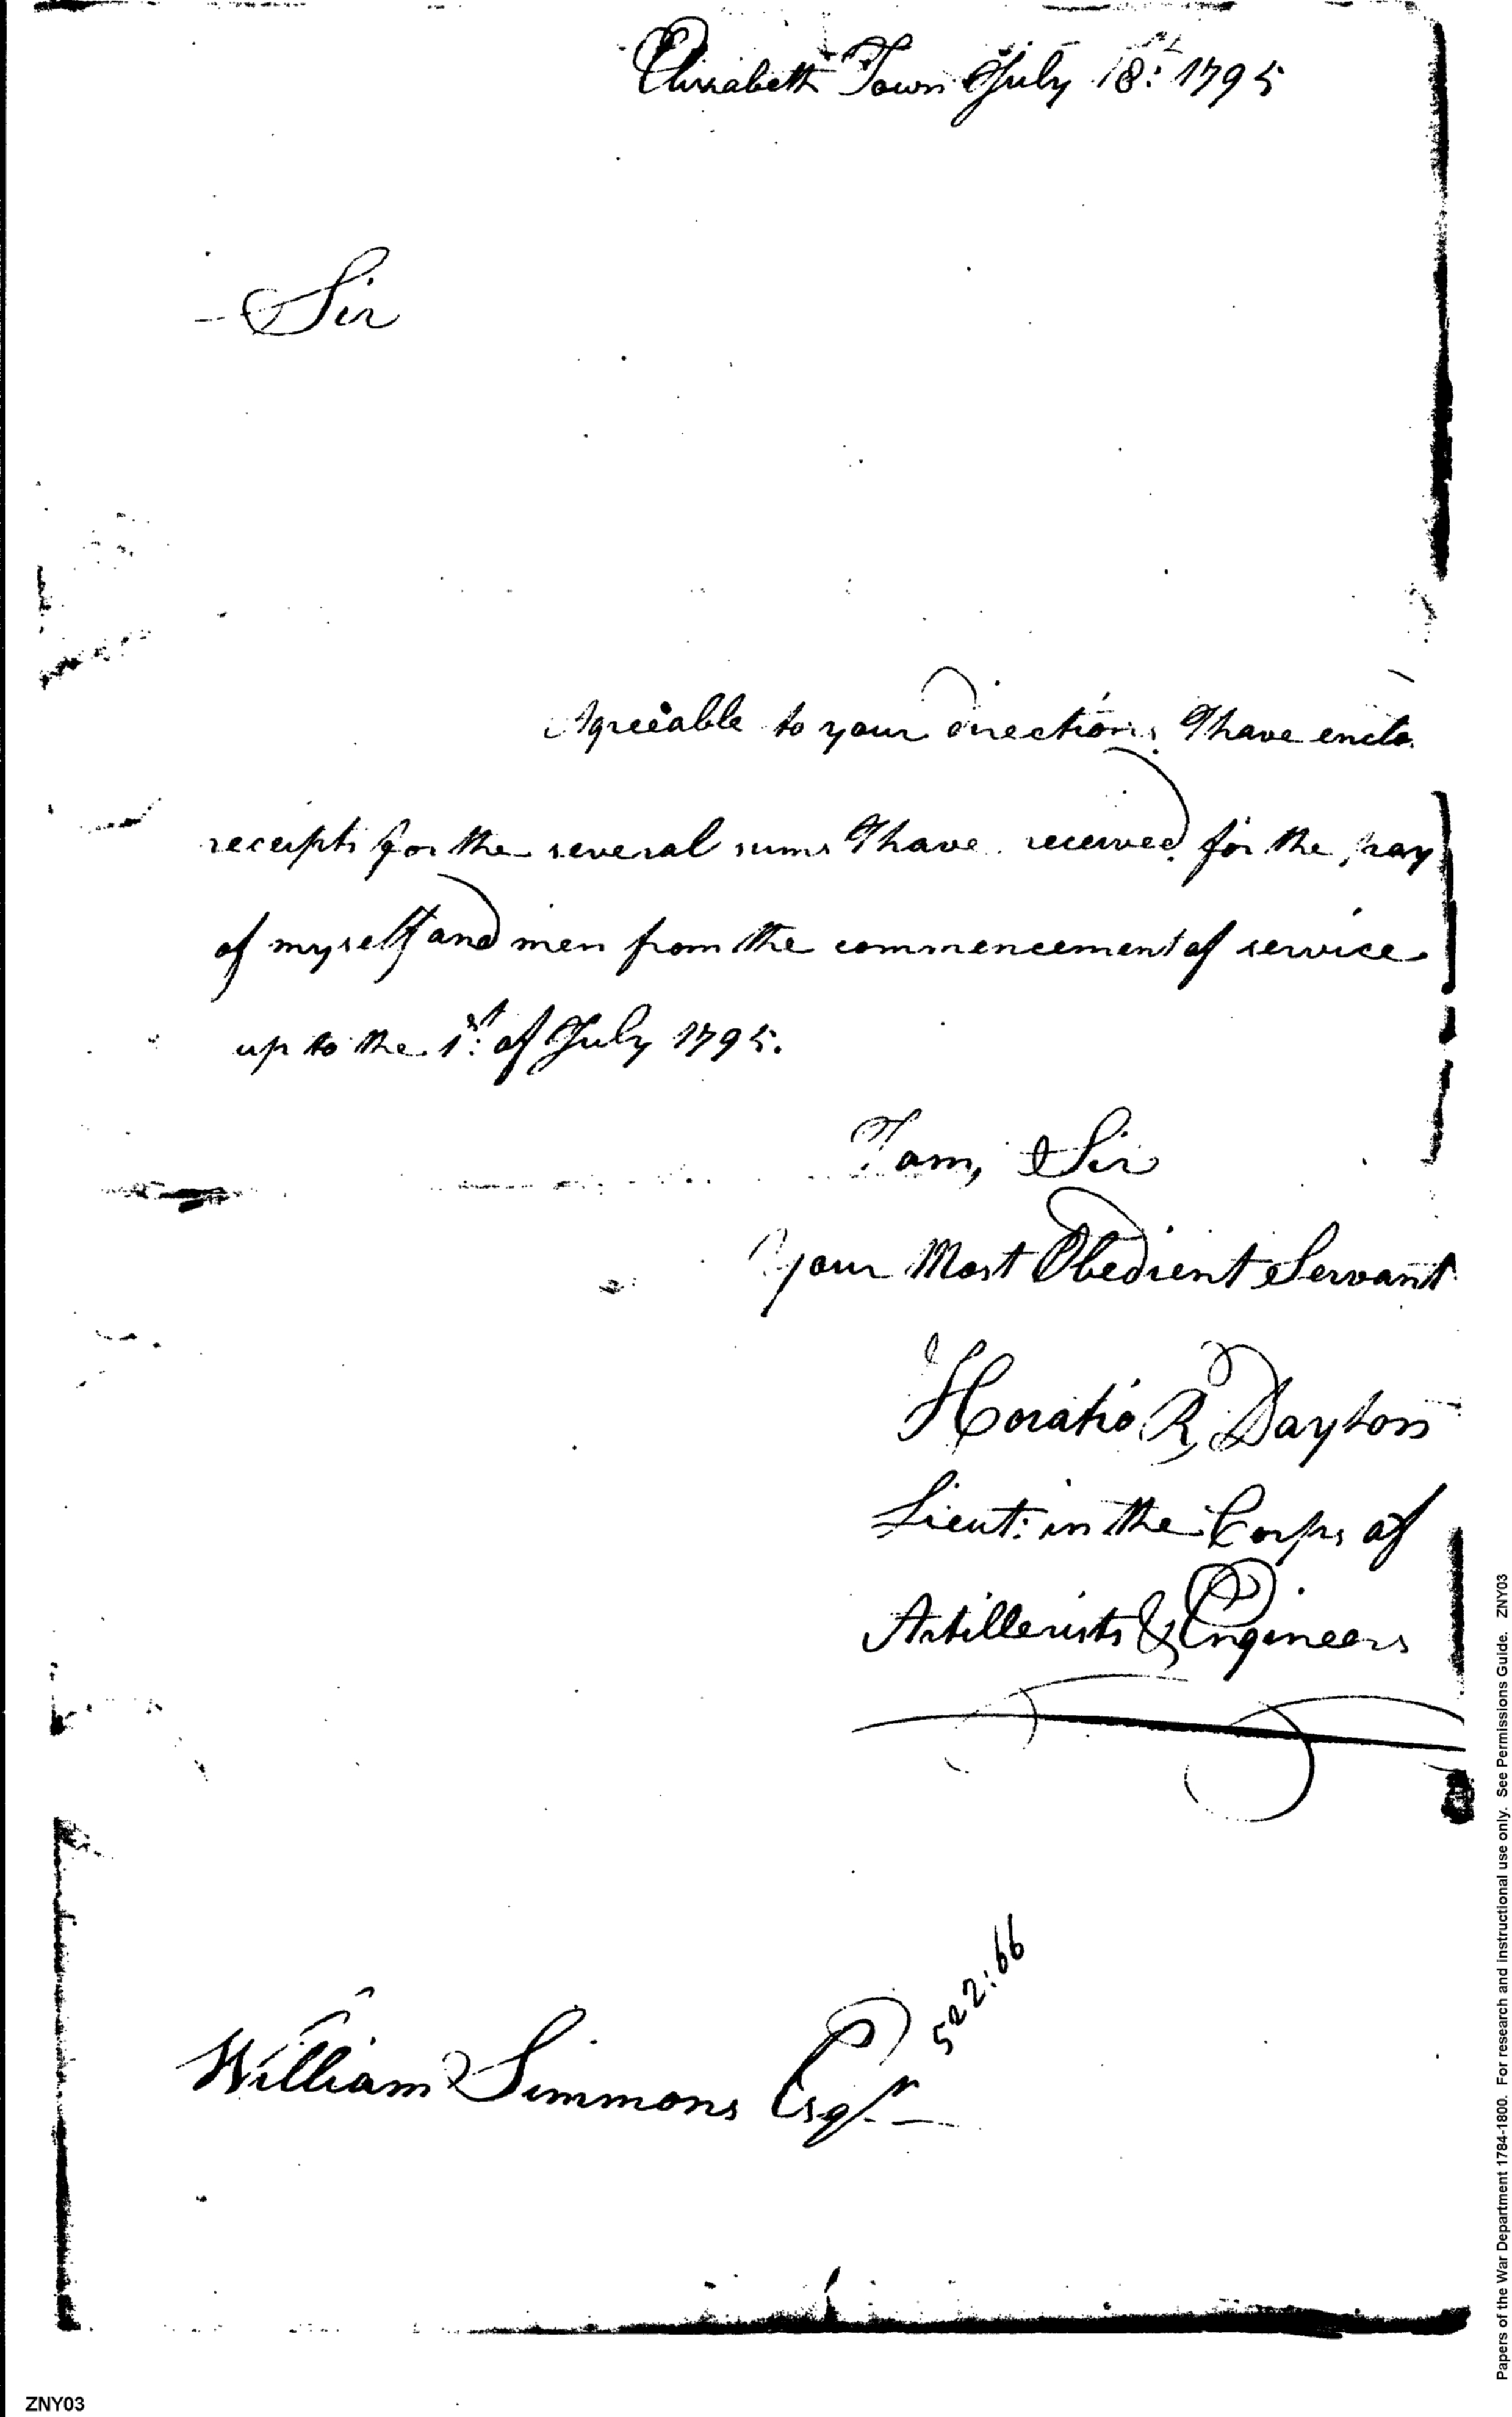 Elizabeth Town July 18: 1795
Sir
Agreeable to your directions I have enclo
receipts for the several sums I have received for the pay
of myself and men from the commencement of service
up to the 1st of July 1795.
I am, Sir
Your Most Obedient Servant
Horatio R Dayton
Lieut: in the Corps of
Artillerists & Engineers
522:66
William Simmons Esqr
Papers of the War Department 1784-1800. For research and instructional use only. See Permissions Guide. ZNY03
ZNY03